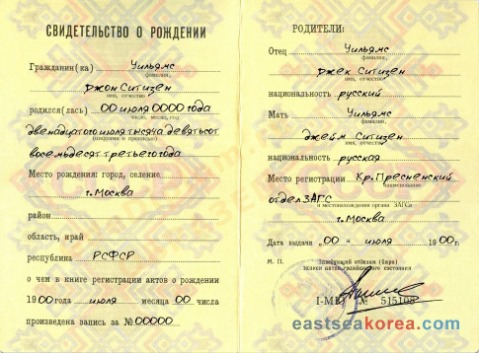 СВИДЕТЕЛЬСТВО О РОЖДЕНИИ
Гражданин(ка) Уильямс
фамилия,
джон Ситизен
имя, отчество
родился(лась) 00 июля 0000 года
число, месяц, год
двенадцатого июля тысяча девятьсот
(цифрами и прописью)
восемьдесят третьего года
Место рождения: город, селение
г. Москва
район
область, край
республика РСФСР
о чем в книге регистрации актов о рождении
1900 года июля месяца 00 числа
произведена запись за № 00000
РОДИТЕЛИ:
Отец Уильямс
фамилия,
джек Ситизен
имя, отчество
национальность русский
Мать Уильямс
фамилия,
джейм Ситизен
имя, отчество
национальность русская
Место регистрации Кр. Пресненский
наименование
отдел ЗАГС
и местонахождение органа ЗАГСа
г. Москва
Дата выдачи „00 “ июля 1900г.
М. П. Заведующий отделом (бюро)
записи актов гражданского состояния
№ 515108
eastseakorea.com